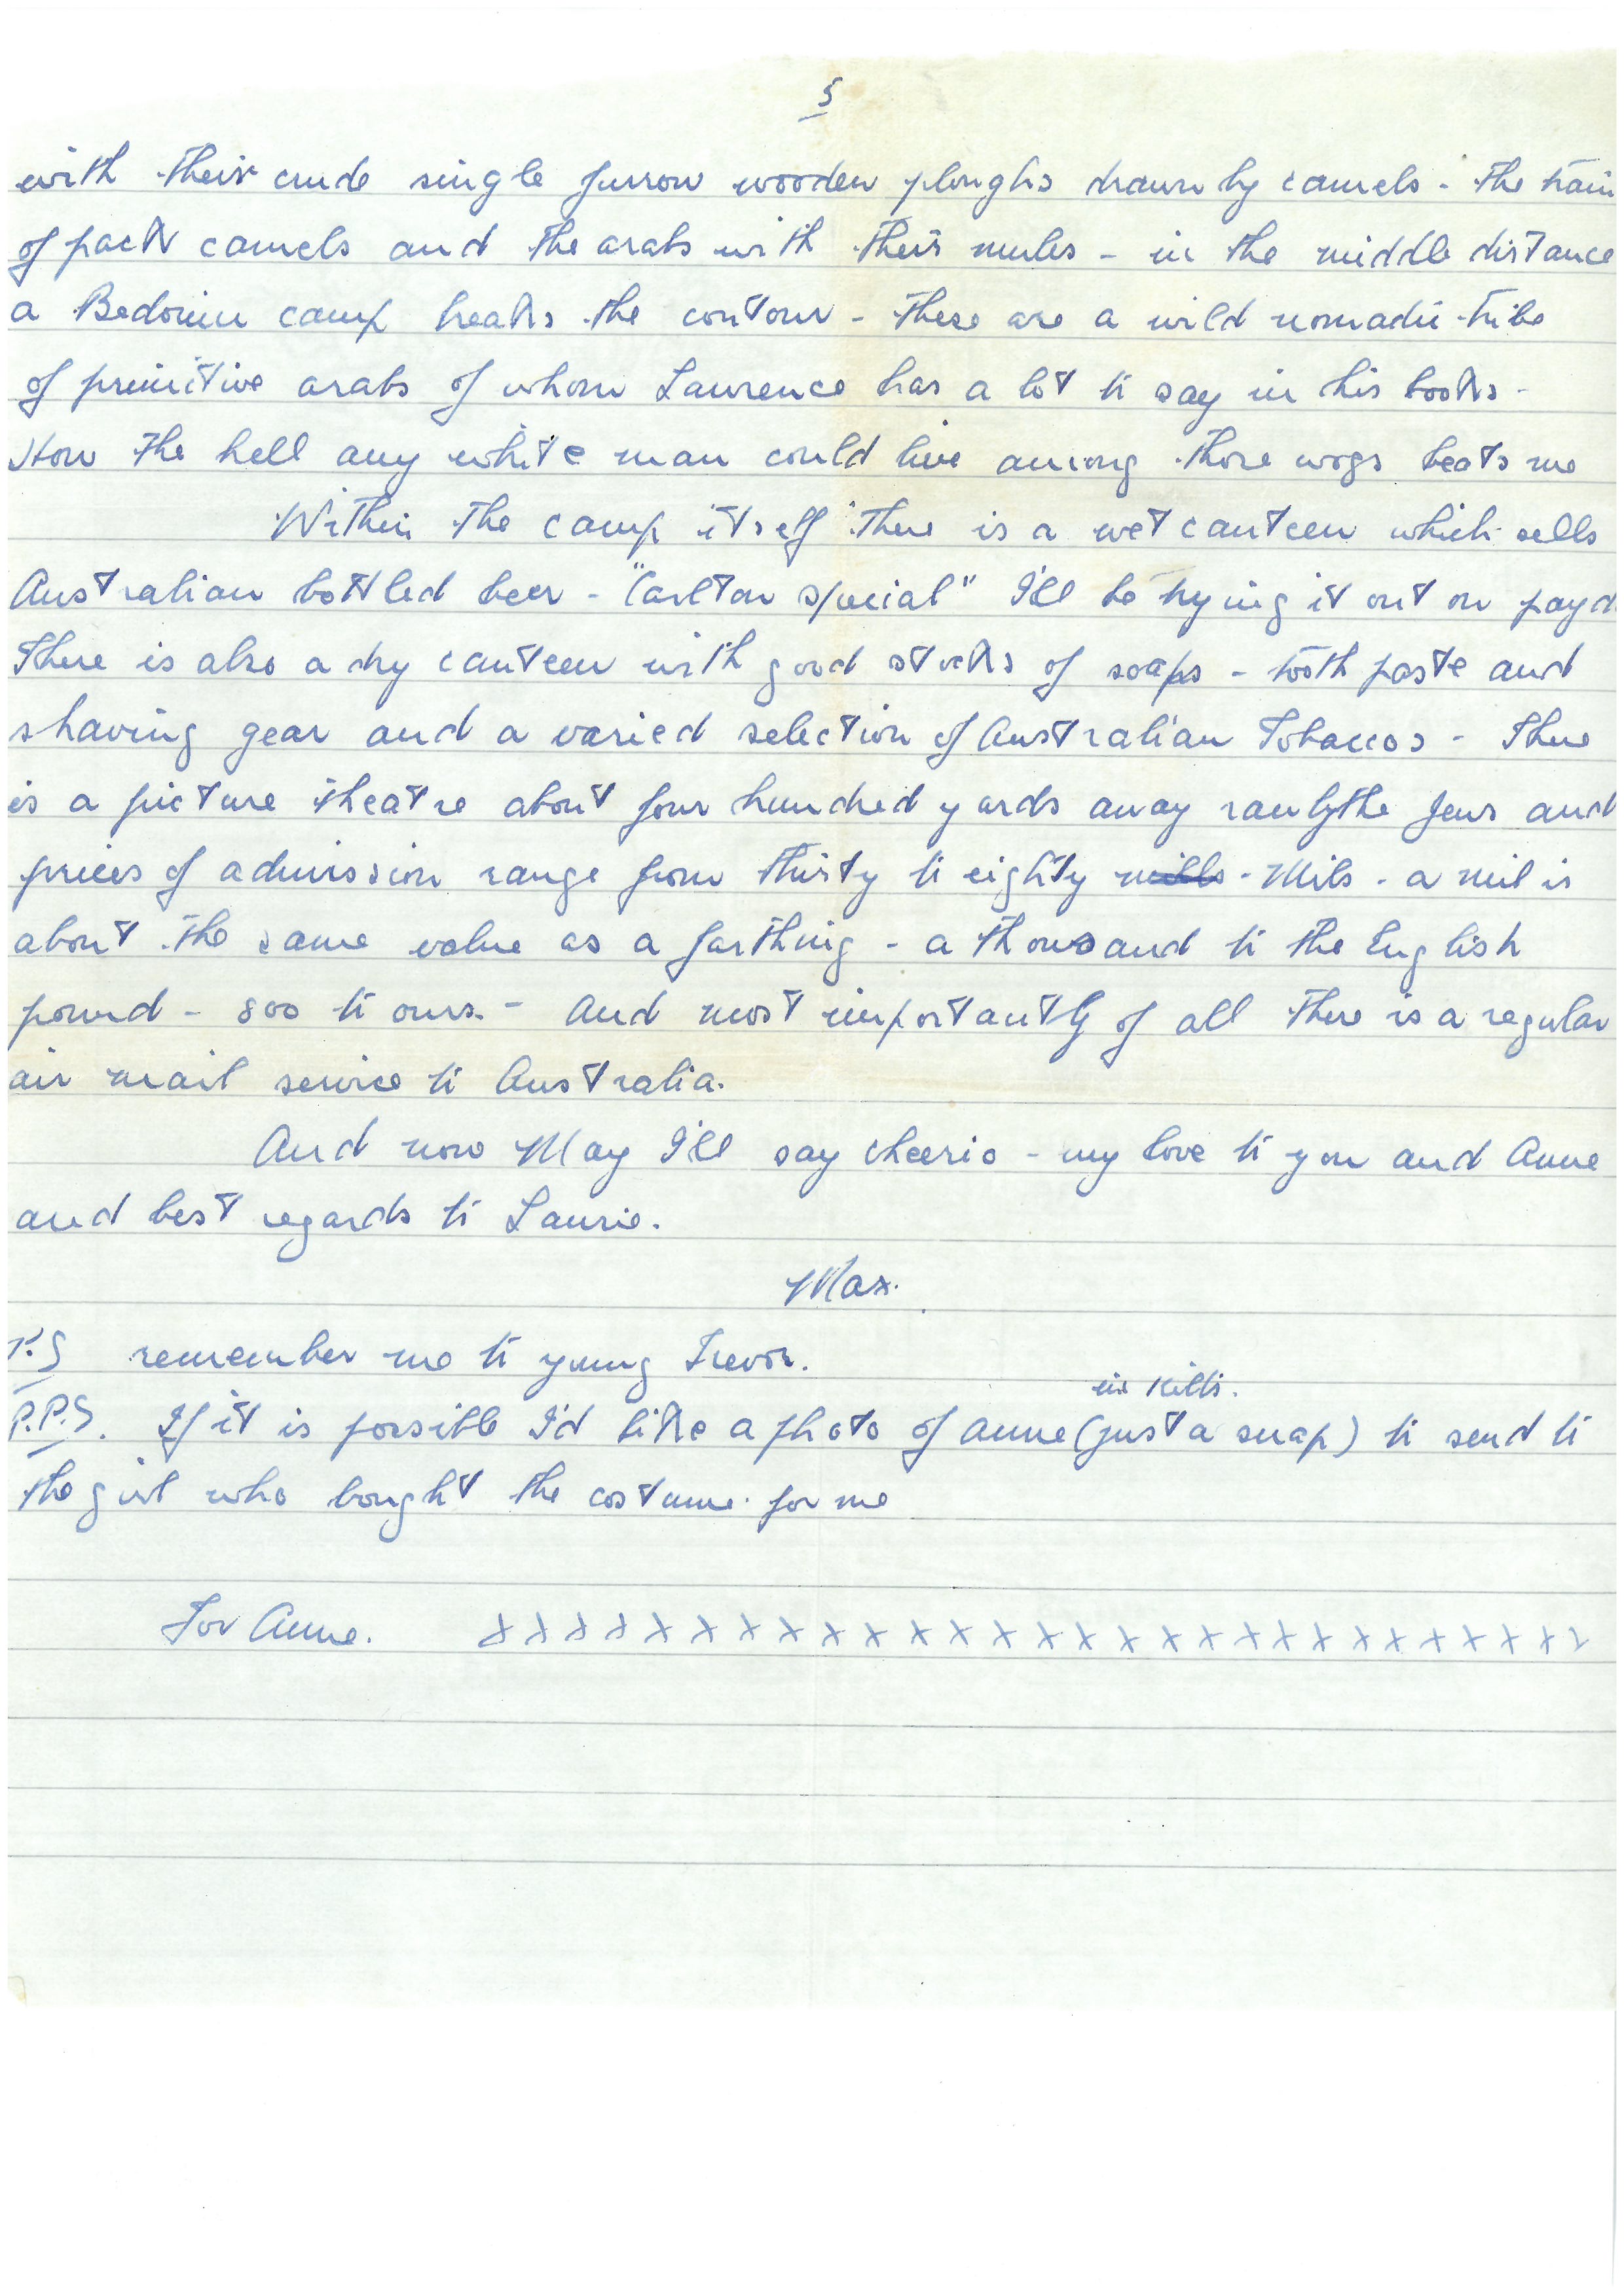 5
with their crude single furrow wooden ploughs drawn by camels - the train
of pack camels and the arabs with their mules - in the middle distance
a Bedouin camp breaks the contour - these are a wild nomadic tribe
of primitive arabs of whom Lawrence has a lot to say in his books -
How the hell any white man could live among those wogs beats me
Within the camp itself there is a wet canteen which sells
Australian bottled beer - "Carlton Special" I'll be trying it out on payd
There is also a dry canteen with good stocks of soaps - tooth paste and
shaving gear and a varied selection of Australian Tobaccos - There
is a picture theatre about four hundred yards away ran by the Jews and
prices of admission range from thirty to eighty mills - Mils - a mil is
about the same value as a farthing - a thousand to the English
pound - 800 to ours - And most importantly of all there is a regular
air mail service to Australia.
And now May I'll say cheerio - my love to you and Anne
and best regards to Laurie.
Max.
P.S remember me to young Trevor.
in kilts.
P.P.S. If it is possible I'd like a photo of Anne (just a snap) to send to
the girl who bought the costume for me
For Anne. x x x x x x x x x x x x x x x x x x x x x x x x x x x x